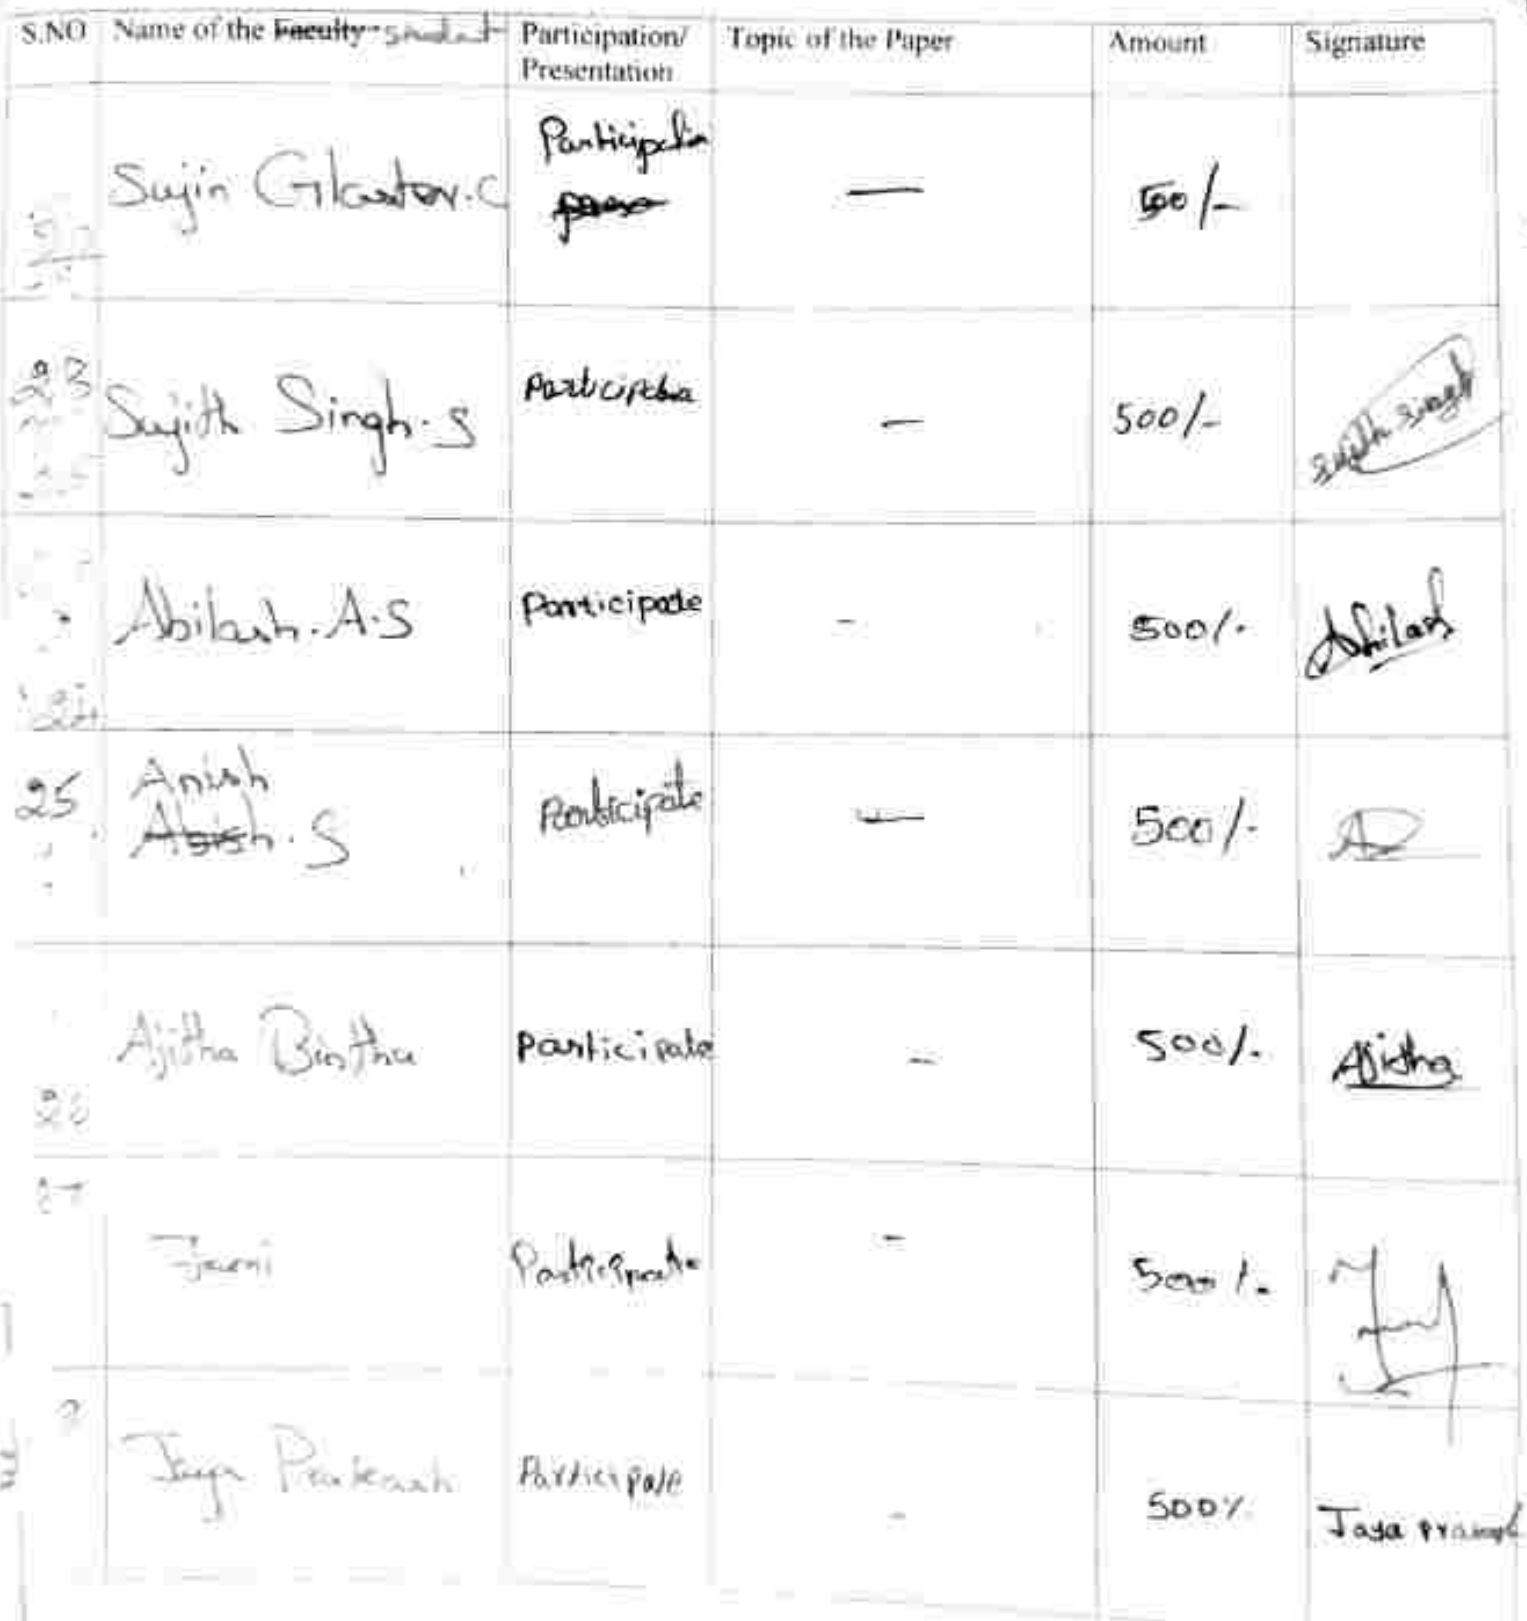 S.NO Name of the Faculty student Participation/ Topic of the Paper Amount Signature
Presentation
Sujin C Participation — 500/-
23 Sujith Singh.S Participation — 500/- Sujith Singh
24 Abilash.A.S Participate - 500/- Abilash
25 Anish Participate — 500/-
Abish.S
26 Ajitha Binthu Participate - 500/- Ajitha
27 Participate - 500/-
Jaya Prakash Participate - 500/- Jaya Prakash